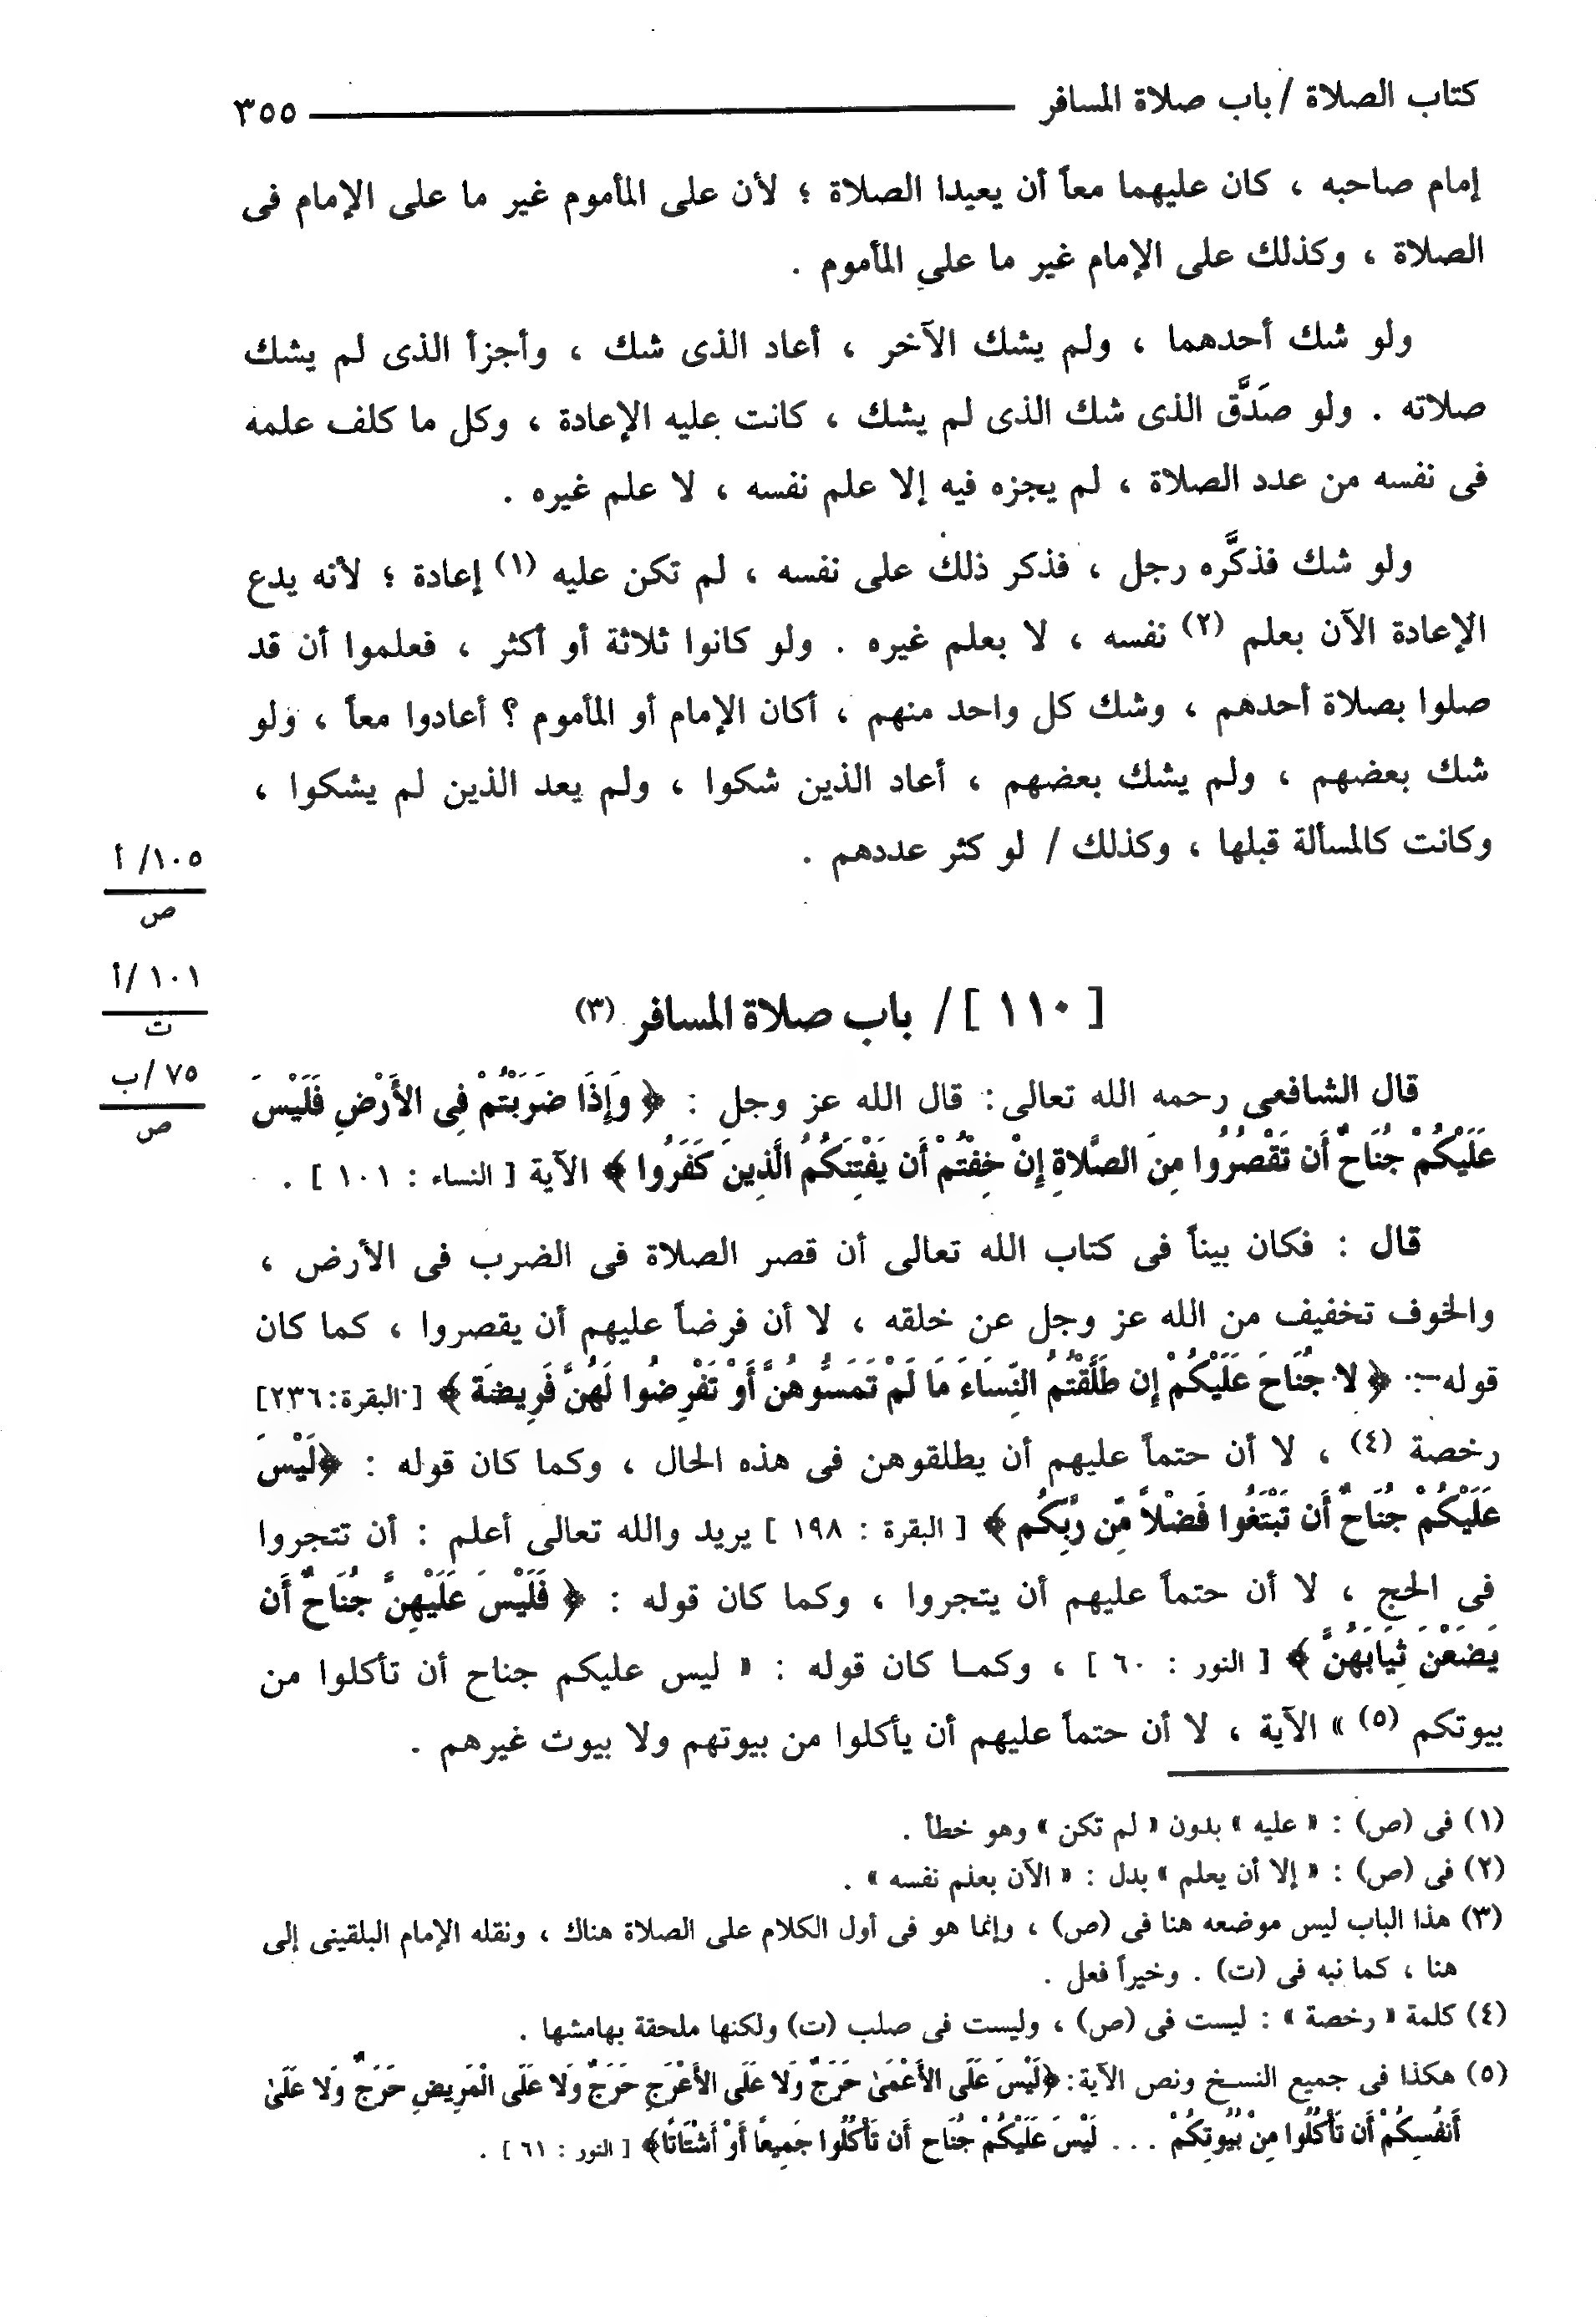 كتاب الصلاة / باب صلاة المسافر ٣٥٥
إمام صاحبه ، كان عليهما معاً أن يعيدا الصلاة ؛ لأن على المأموم غير ما على الإمام فى
الصلاة ، وكذلك على الإمام غير ما على المأموم .
ولو شك أحدهما ، ولم يشك الآخر ، أعاد الذى شك ، وأجزأ الذى لم يشك
صلاته . ولو صَدَّق الذى شك الذى لم يشك ، كانت عليه الإعادة ، وكل ما كلف علمه
فى نفسه من عدد الصلاة ، لم يجزه فيه إلا علم نفسه ، لا علم غيره .
ولو شك فذكَّره رجل ، فذكر ذلك على نفسه ، لم تكن عليه (١) إعادة ؛ لأنه يدع
الإعادة الآن بعلم (٢) نفسه ، لا بعلم غيره . ولو كانوا ثلاثة أو أكثر ، فعلموا أن قد
صلوا بصلاة أحدهم ، وشك كل واحد منهم ، أكان الإمام أو المأموم ؟ أعادوا معاً ، ولو
شك بعضهم ، ولم يشك بعضهم ، أعاد الذين شكوا ، ولم يعد الذين لم يشكوا ،
وكانت كالمسألة قبلها ، وكذلك / لو كثر عددهم .
١٠٥/ أ
ص
١٠١ /أ
ت
[ ١١٠ ] / باب صلاة المسافر (٣)
٧٥ /ب
ص
قال الشافعى رحمه الله تعالى : قال الله عز وجل : ﴿ وَإِذَا ضَرَبْتُمْ فِى الأَرْضِ فَلَيْسَ
عَلَيْكُمْ جُنَاحٌ أَن تَقْصُرُوا مِنَ الصَّلاةِ إِنْ خِفْتُمْ أَن يَفْتِنَكُمُ الَّذِينَ كَفَرُوا ﴾ الآية [ النساء : ١٠١ ] .
قال : فكان بيناً فى كتاب الله تعالى أن قصر الصلاة فى الضرب فى الأرض ،
والخوف تخفيف من الله عز وجل عن خلقه ، لا أن فرضاً عليهم أن يقصروا ، كما كان
قوله : ﴿ لا جُنَاحَ عَلَيْكُمْ إِن طَلَّقْتُمُ النِّسَاءَ مَا لَمْ تَمَسُّوهُنَّ أَوْ تَفْرِضُوا لَهُنَّ فَرِيضَةً ﴾ [ البقرة: ٢٣٦]
رخصة (٤) ، لا أن حتماً عليهم أن يطلقوهن فى هذه الحال ، وكما كان قوله : ﴿لَيْسَ
عَلَيْكُمْ جُنَاحٌ أَن تَبْتَغُوا فَضْلاً مِّن رَّبِّكُم ﴾ [ البقرة : ١٩٨ ] يريد والله تعالى أعلم : أن تتجروا
فى الحج ، لا أن حتماً عليهم أن يتجروا ، وكما كان قوله : ﴿ فَلَيْسَ عَلَيْهِنَّ جُنَاحٌ أَن
يَضَعْنَ ثِيَابَهُنَّ ﴾ [ النور : ٦٠ ] ، وكمـا كان قوله : « ليس عليكم جناح أن تأكلوا من
بيوتكم (٥) » الآية ، لا أن حتماً عليهم أن يأكلوا من بيوتهم ولا بيوت غيرهم .
(١) فى (ص) : « عليه » بدون « لم تكن » وهو خطأ .
(٢) فى (ص) : « إلا أن يعلم » بدل : « الآن بعلم نفسه » .
(٣) هذا الباب ليس موضعه هنا فى (ص) ، وإنما هو فى أول الكلام على الصلاة هناك ، ونقله الإمام البلقينى إلى
هنا ، كما نبه فى (ت) . وخيراً فعل .
(٤) كلمة « رخصة » : ليست فى (ص) ، وليست فى صلب (ت) ولكنها ملحقة بهامشها .
(٥) هكذا فى جميع النسـخ ونص الآية: ﴿لَيْسَ عَلَى الأَعْمَىٰ حَرَجٌ وَلا عَلَى الأَعْرَجِ حَرَجٌ وَلا عَلَى الْمَرِيضِ حَرَجٌ وَلا عَلَىٰ
أَنفُسِكُمْ أَن تَأْكُلُوا مِنْ بُيُوتِكُمْ ... لَيْسَ عَلَيْكُمْ جُنَاح أَن تَأْكُلُوا جَمِيعًا أَوْ أَشْتَاتًا﴾ [ النور : ٦١ ] .